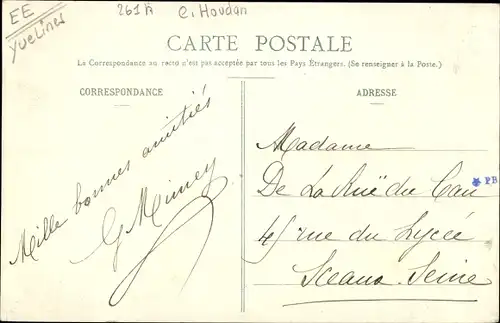 EE
Yvelines
261A
C. Houdan
CARTE POSTALE
La Correspondance au recto n'est pas acceptée par tous les Pays Étrangers. (Se renseigner à la Poste.)
CORRESPONDANCE
Mille bonnes amitiés
ADRESSE
Madame
De La Rüe du Can
4 rue du Lycée
Sceaux. Seine
PB